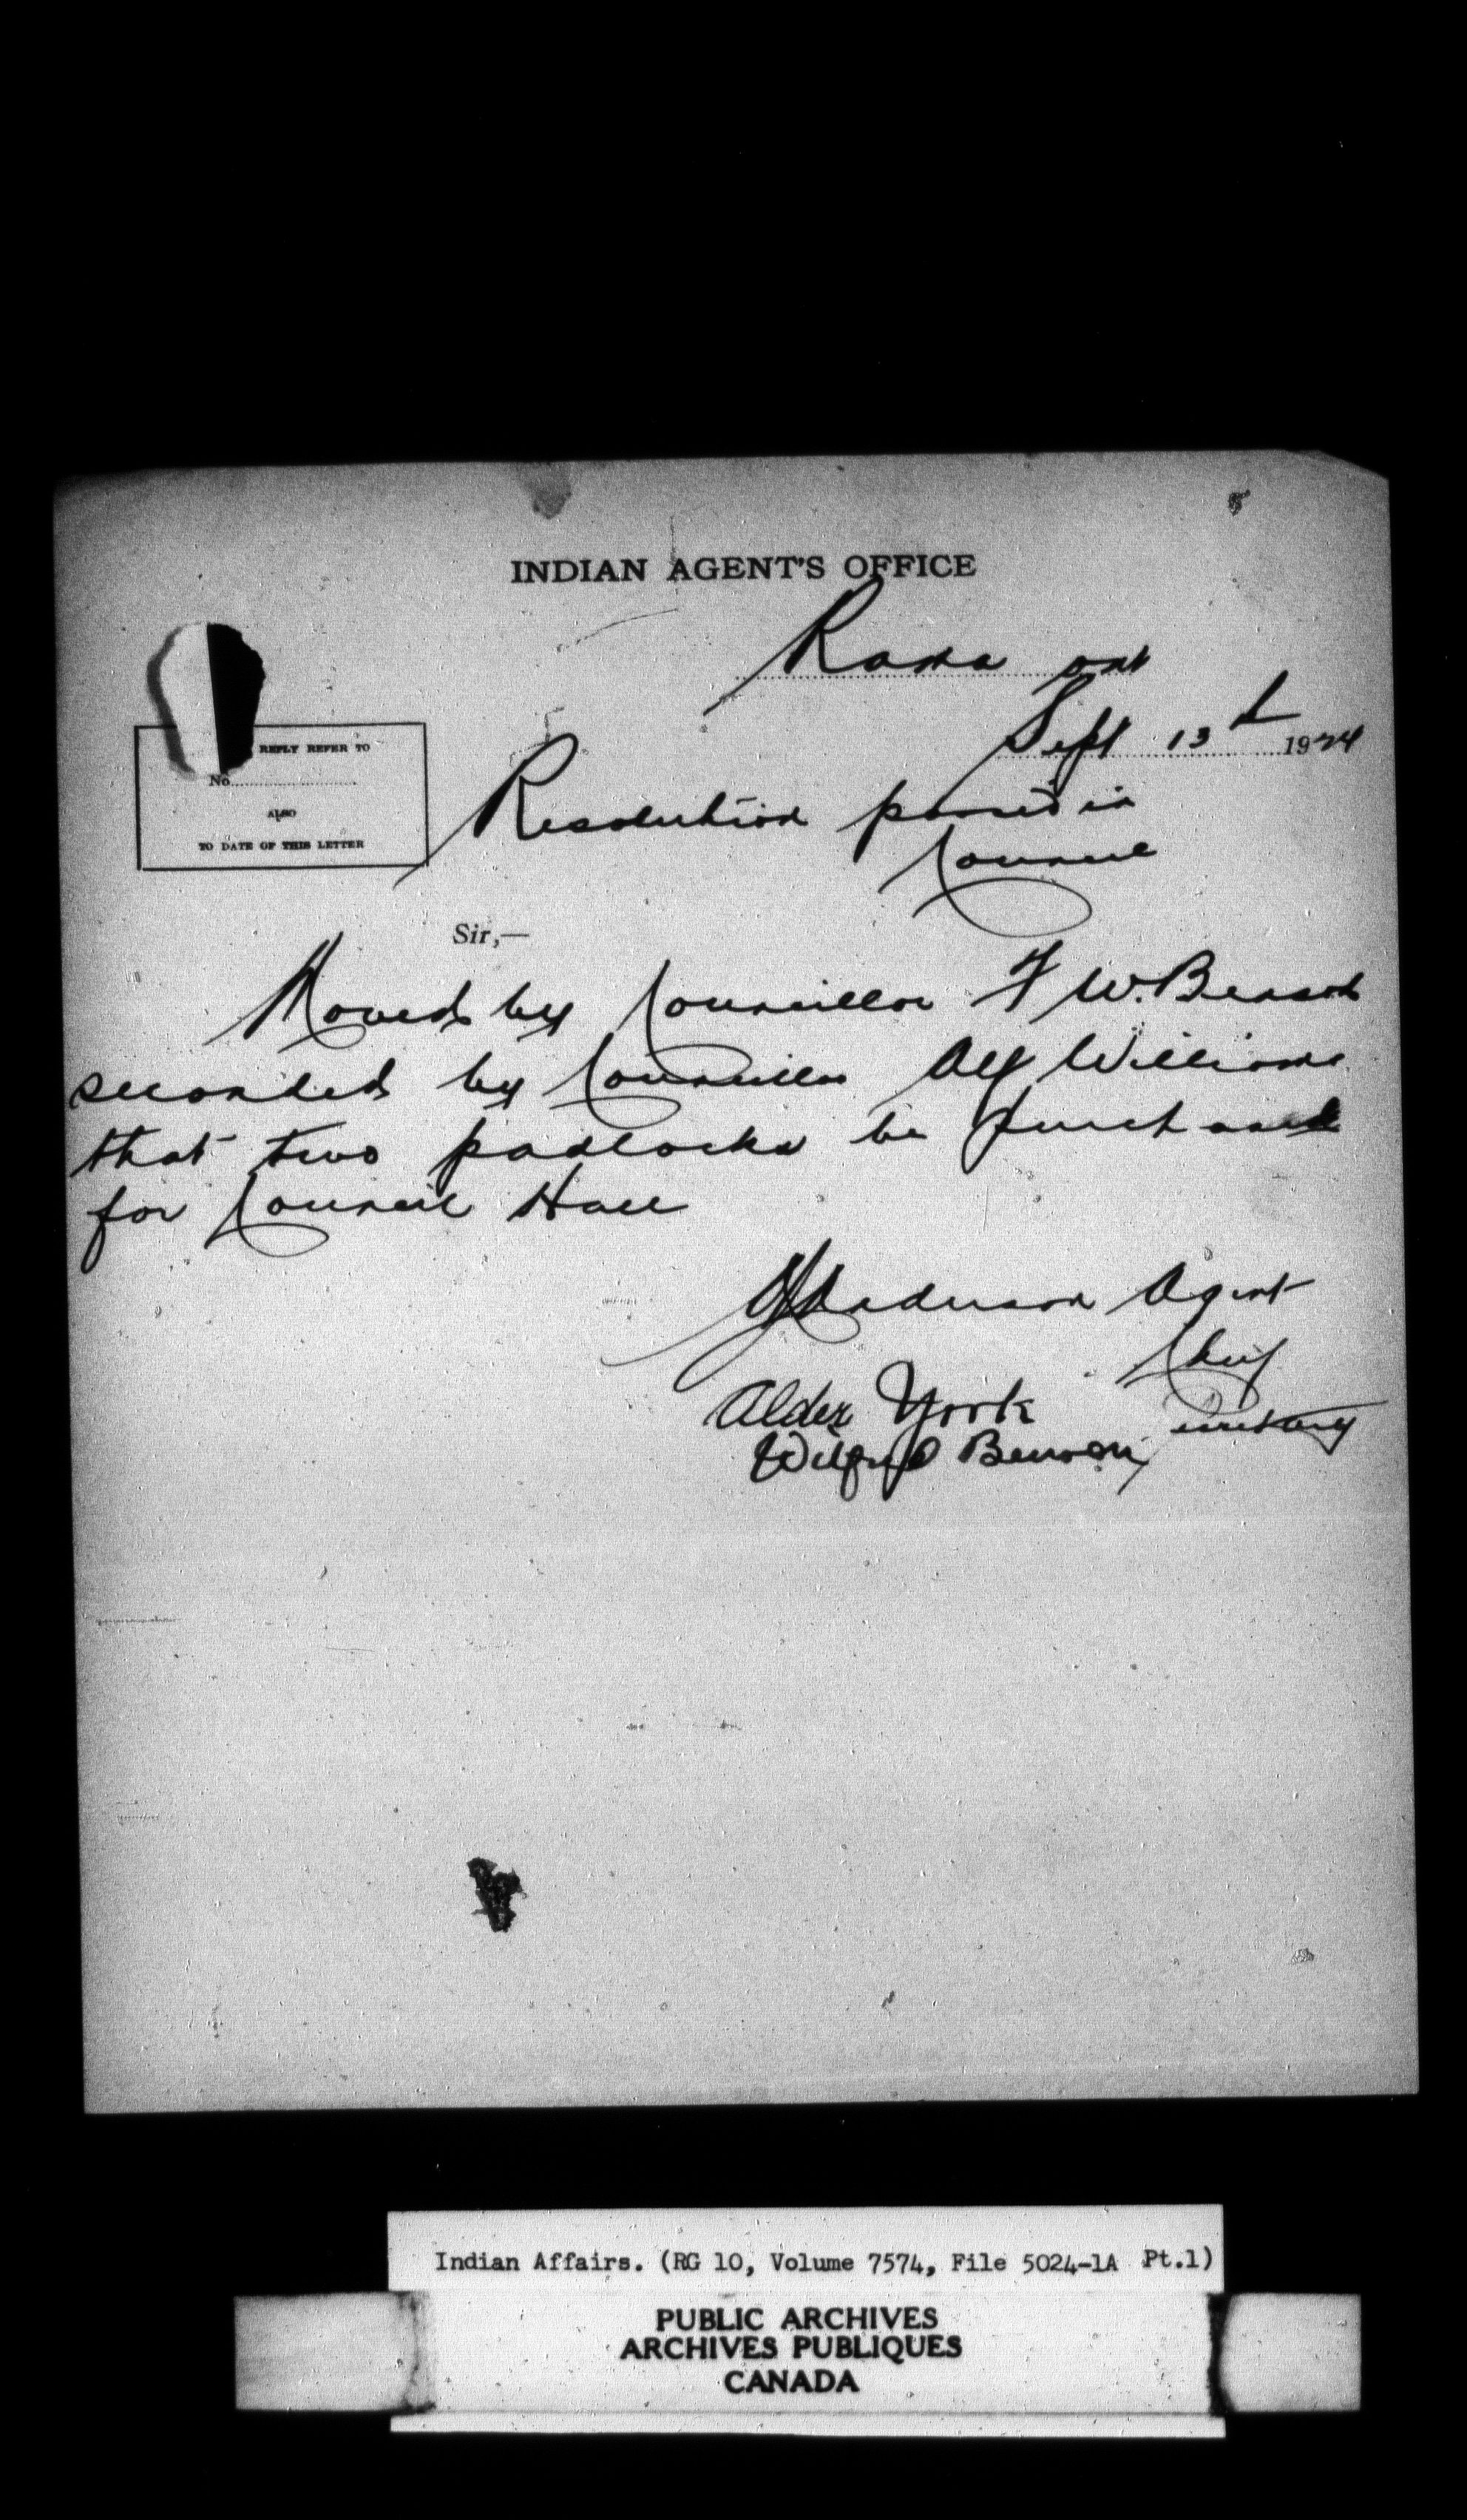 INDIAN AGENT'S OFFICE
Rama Ont
Sept 13th 1924
REPLY REFER TO
No.
ALSO
TO DATE OF THIS LETTER
Resolution passed in
Council
Sir,—
Moved by Councillor F W. Benson
seconded by Councillor Alf Williams
that two padlocks be purchased
for Council Hall
Anderson Agent
Chief
Alder York
Secretary
Wilfred Benson
Indian Affairs. (RG 10, Volume 7574, File 5024-1A Pt.1)
PUBLIC ARCHIVES
ARCHIVES PUBLIQUES
CANADA